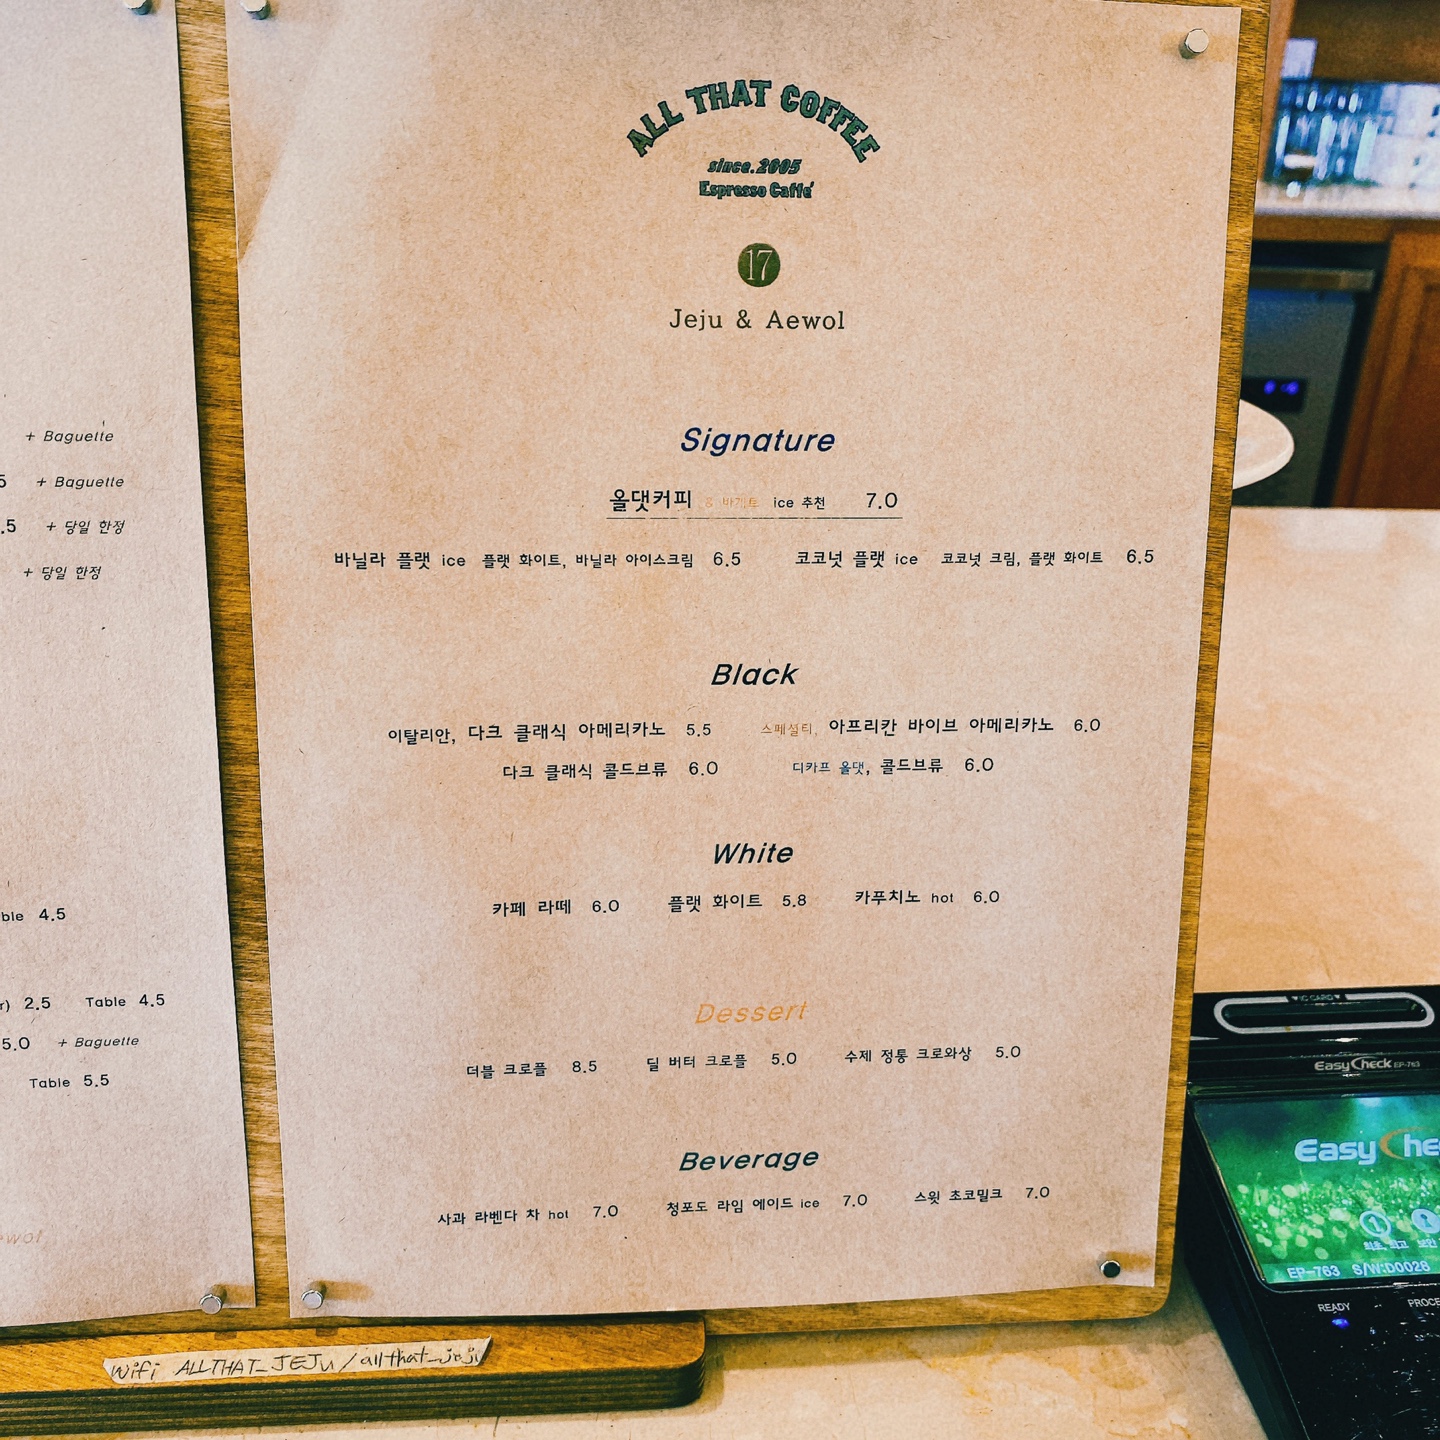 + Baguette
5 + Baguette
.5 + 당일 한정
+ 당일 한정
4.5
2.5 Table 4.5
5.0 + Baguette
Table 5.5
ALL THAT COFFEE
since.2005
Espresso Caffé
17
Jeju & Aewol
Signature
올댓커피 & 바게트 ice 추천 7.0
바닐라 플랫 ice 플랫 화이트, 바닐라 아이스크림 6.5 코코넛 플랫 ice 코코넛 크림, 플랫 화이트 6.5
Black
이탈리안, 다크 클래식 아메리카노 5.5 스페셜티, 아프리칸 바이브 아메리카노 6.0
다크 클래식 콜드브류 6.0 디카프 올댓, 콜드브류 6.0
White
카페 라떼 6.0 플랫 화이트 5.8 카푸치노 hot 6.0
Dessert
더블 크로플 8.5 딜 버터 크로플 5.0 수제 정통 크로와상 5.0
Beverage
사과 라벤다 차 hot 7.0 청포도 라임 에이드 ice 7.0 스윗 초코밀크 7.0
wifi ALLTHAT_JEJU / allthat_jeju
IC CARD
EasyCheck EP-763
EasyChe
1
최초, 최고 보안
EP-763 S/W:D0028
READY PROCE